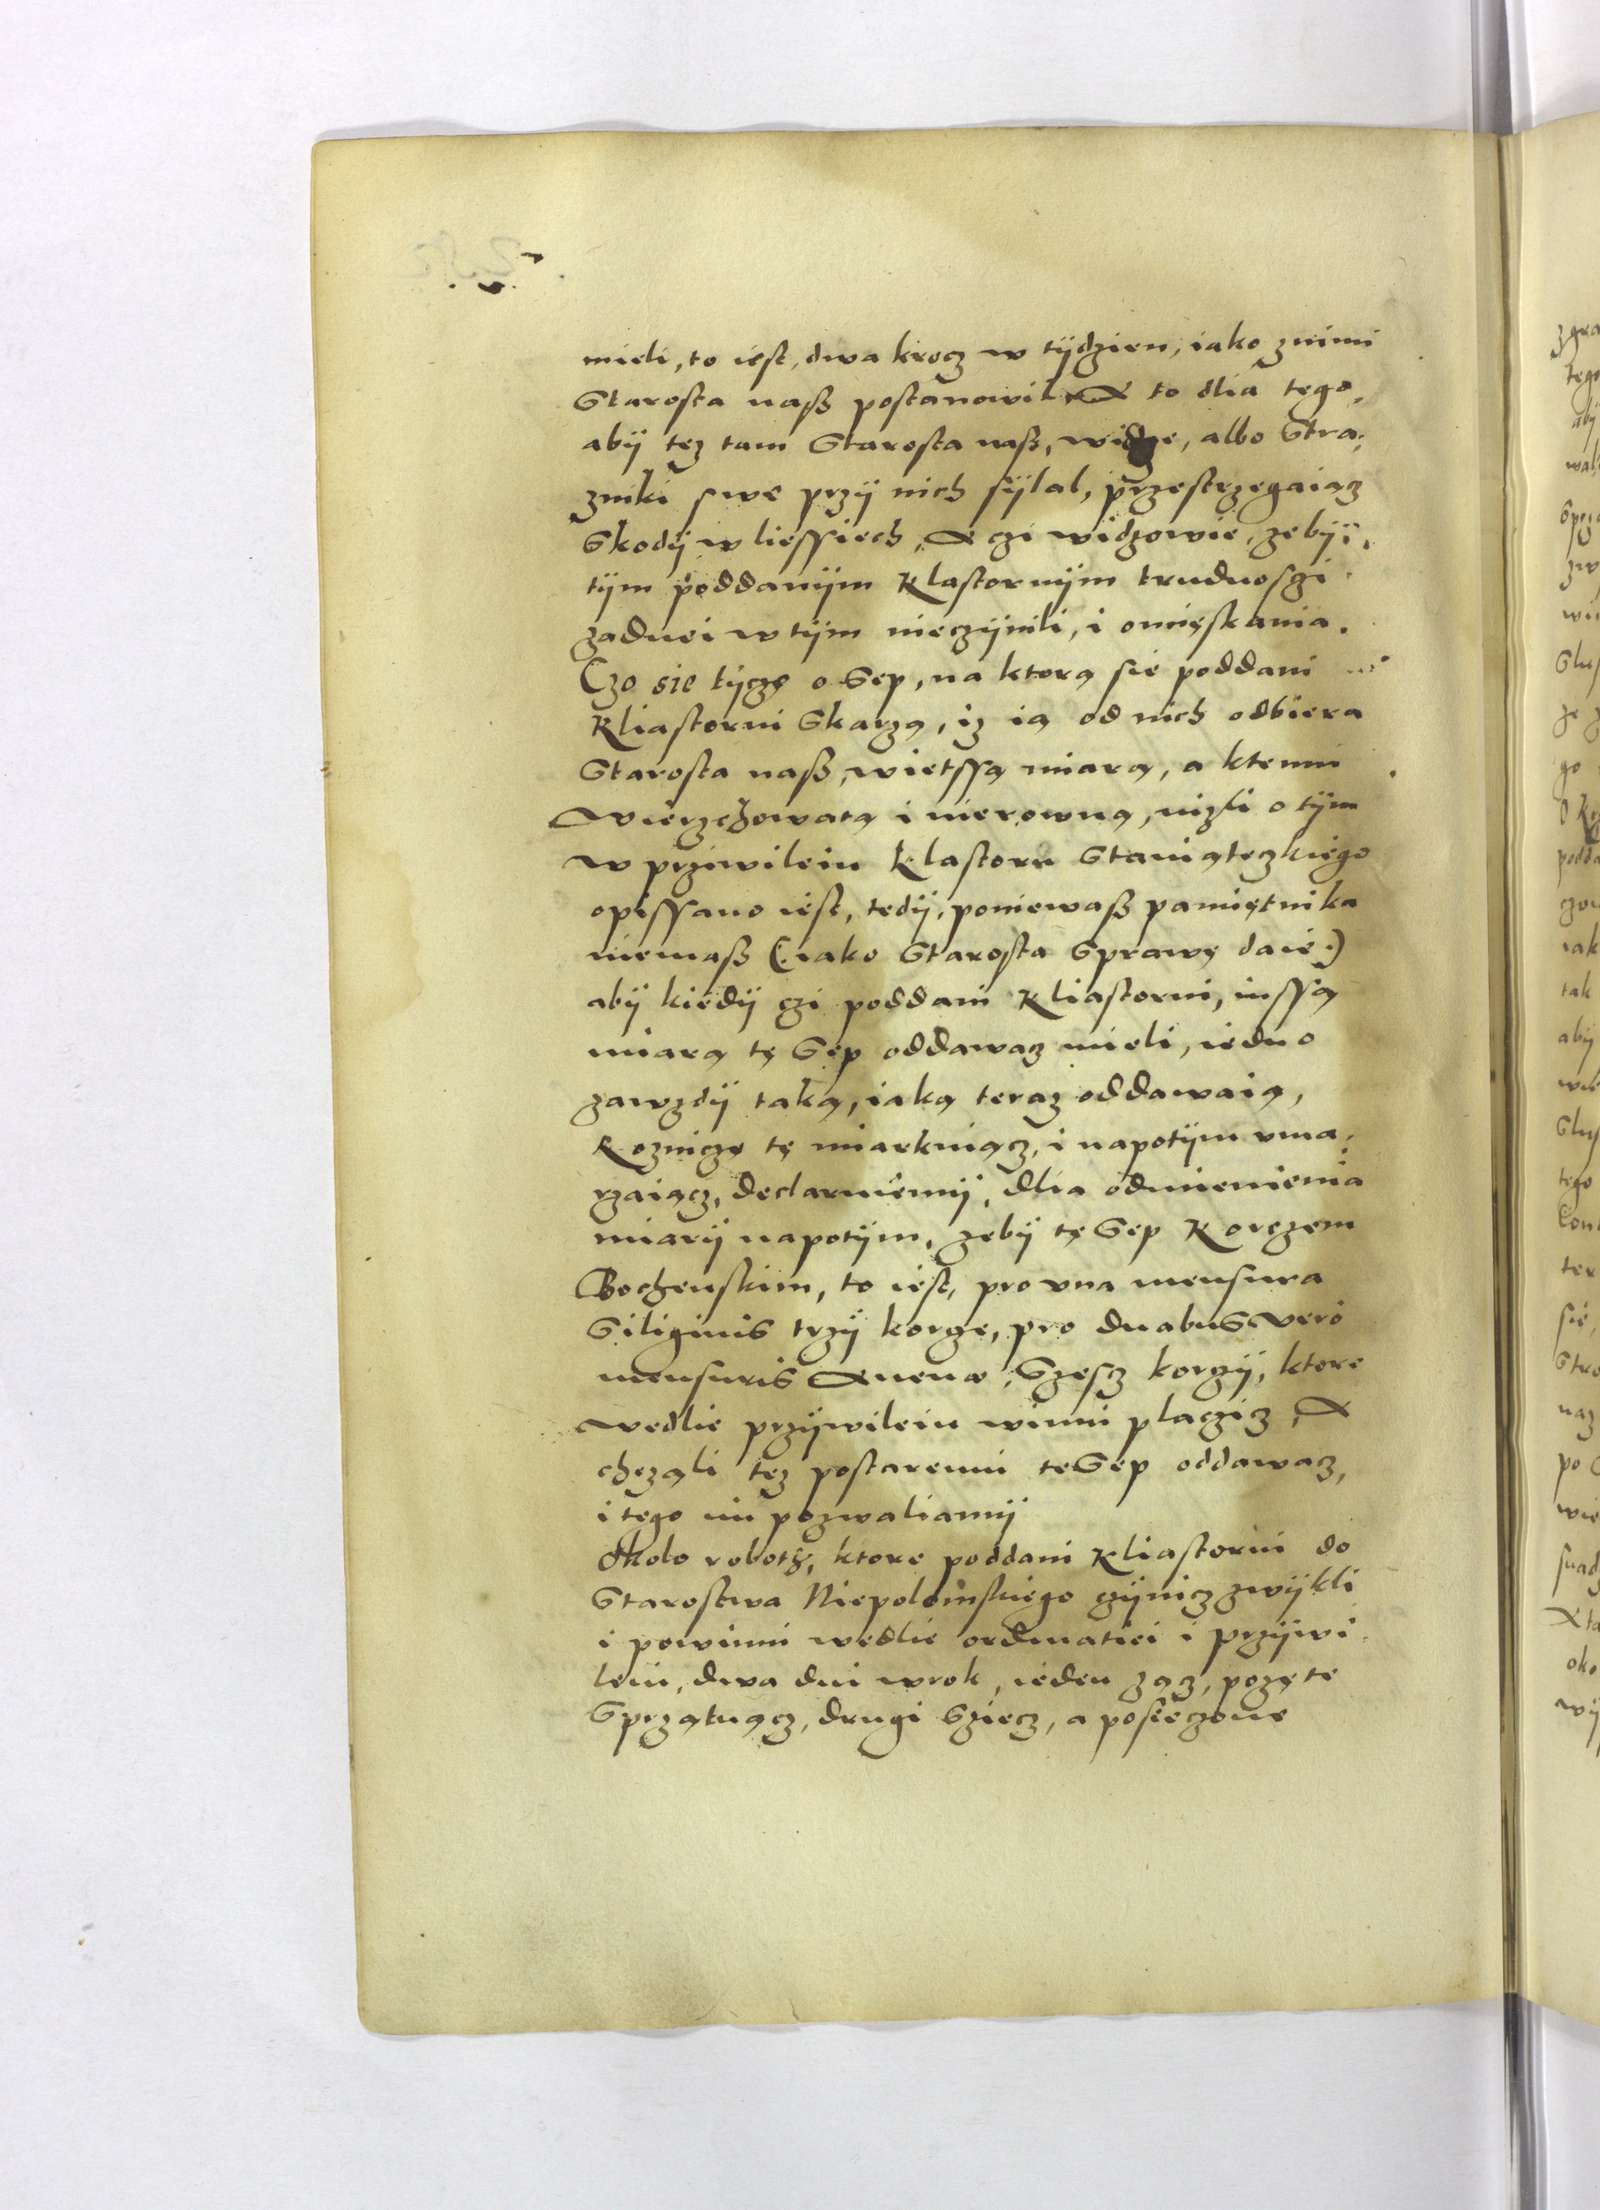 mieli, to iest, dwa krocz w tÿdzien, iako znimi
Starosta nasz postanowil. A to dlia tego,
abÿ tez tam Starosta nasz, widze, albo Stra,
zniki swe przÿ nich sÿlal, przestrzegaiącz
Skodÿ w liessiech, A czi widzowie, zebÿ,
tÿm poddanÿm Klastornÿm trudnosczi
zadnei w tÿm nieczÿnili, i omięskania.
Czo sie tÿczę o Sep, na ktorą sie poddani
Kliastorni Skarzą, iz ią od nich odbiera
Starosta nasz, wietssą miarą, a ktemu
Wierzchowatą i nierowną, nizli o tÿm
w przivileiu Klastoru Staniąteczkiego
opissano iest, tedÿ, poniewasz pamiętnika
niemasz (:iako Starosta Sprawę daie:)
abÿ kiedÿ czi poddani Kliastorni, inssą
miarą tę Sep oddawacz mieli, iedno
zawzdÿ taką, iaką teraz oddawaią,
Rozniczę tę miarkuiącz, i napotÿm vma,
rzaiącz, declaruiemÿ, dlia odmienienia
miarÿ napotÿm, zebÿ tę Sep Korczem
Bochenskim, to iest, pro vna mensura
Siliginis trzÿ korcze, pro duabus Vero
mensuris Auenæ, Szescz korczÿ, ktore
wedlie przÿwileiu winni placzicz, A
chcząli tez postaremu te Sep oddawacz,
i tego im pozwaliamÿ
Około robotÿ, ktore poddani Kliastorni do
Starostwa Niepolomskiego czÿnicz zwÿkli
i powinni wedlie ordinatiei i przÿwi
leiu, dwa dni wrok, ieden zącz, pozęte
Sprzątnącz, drugi Sziecz, a posieczone